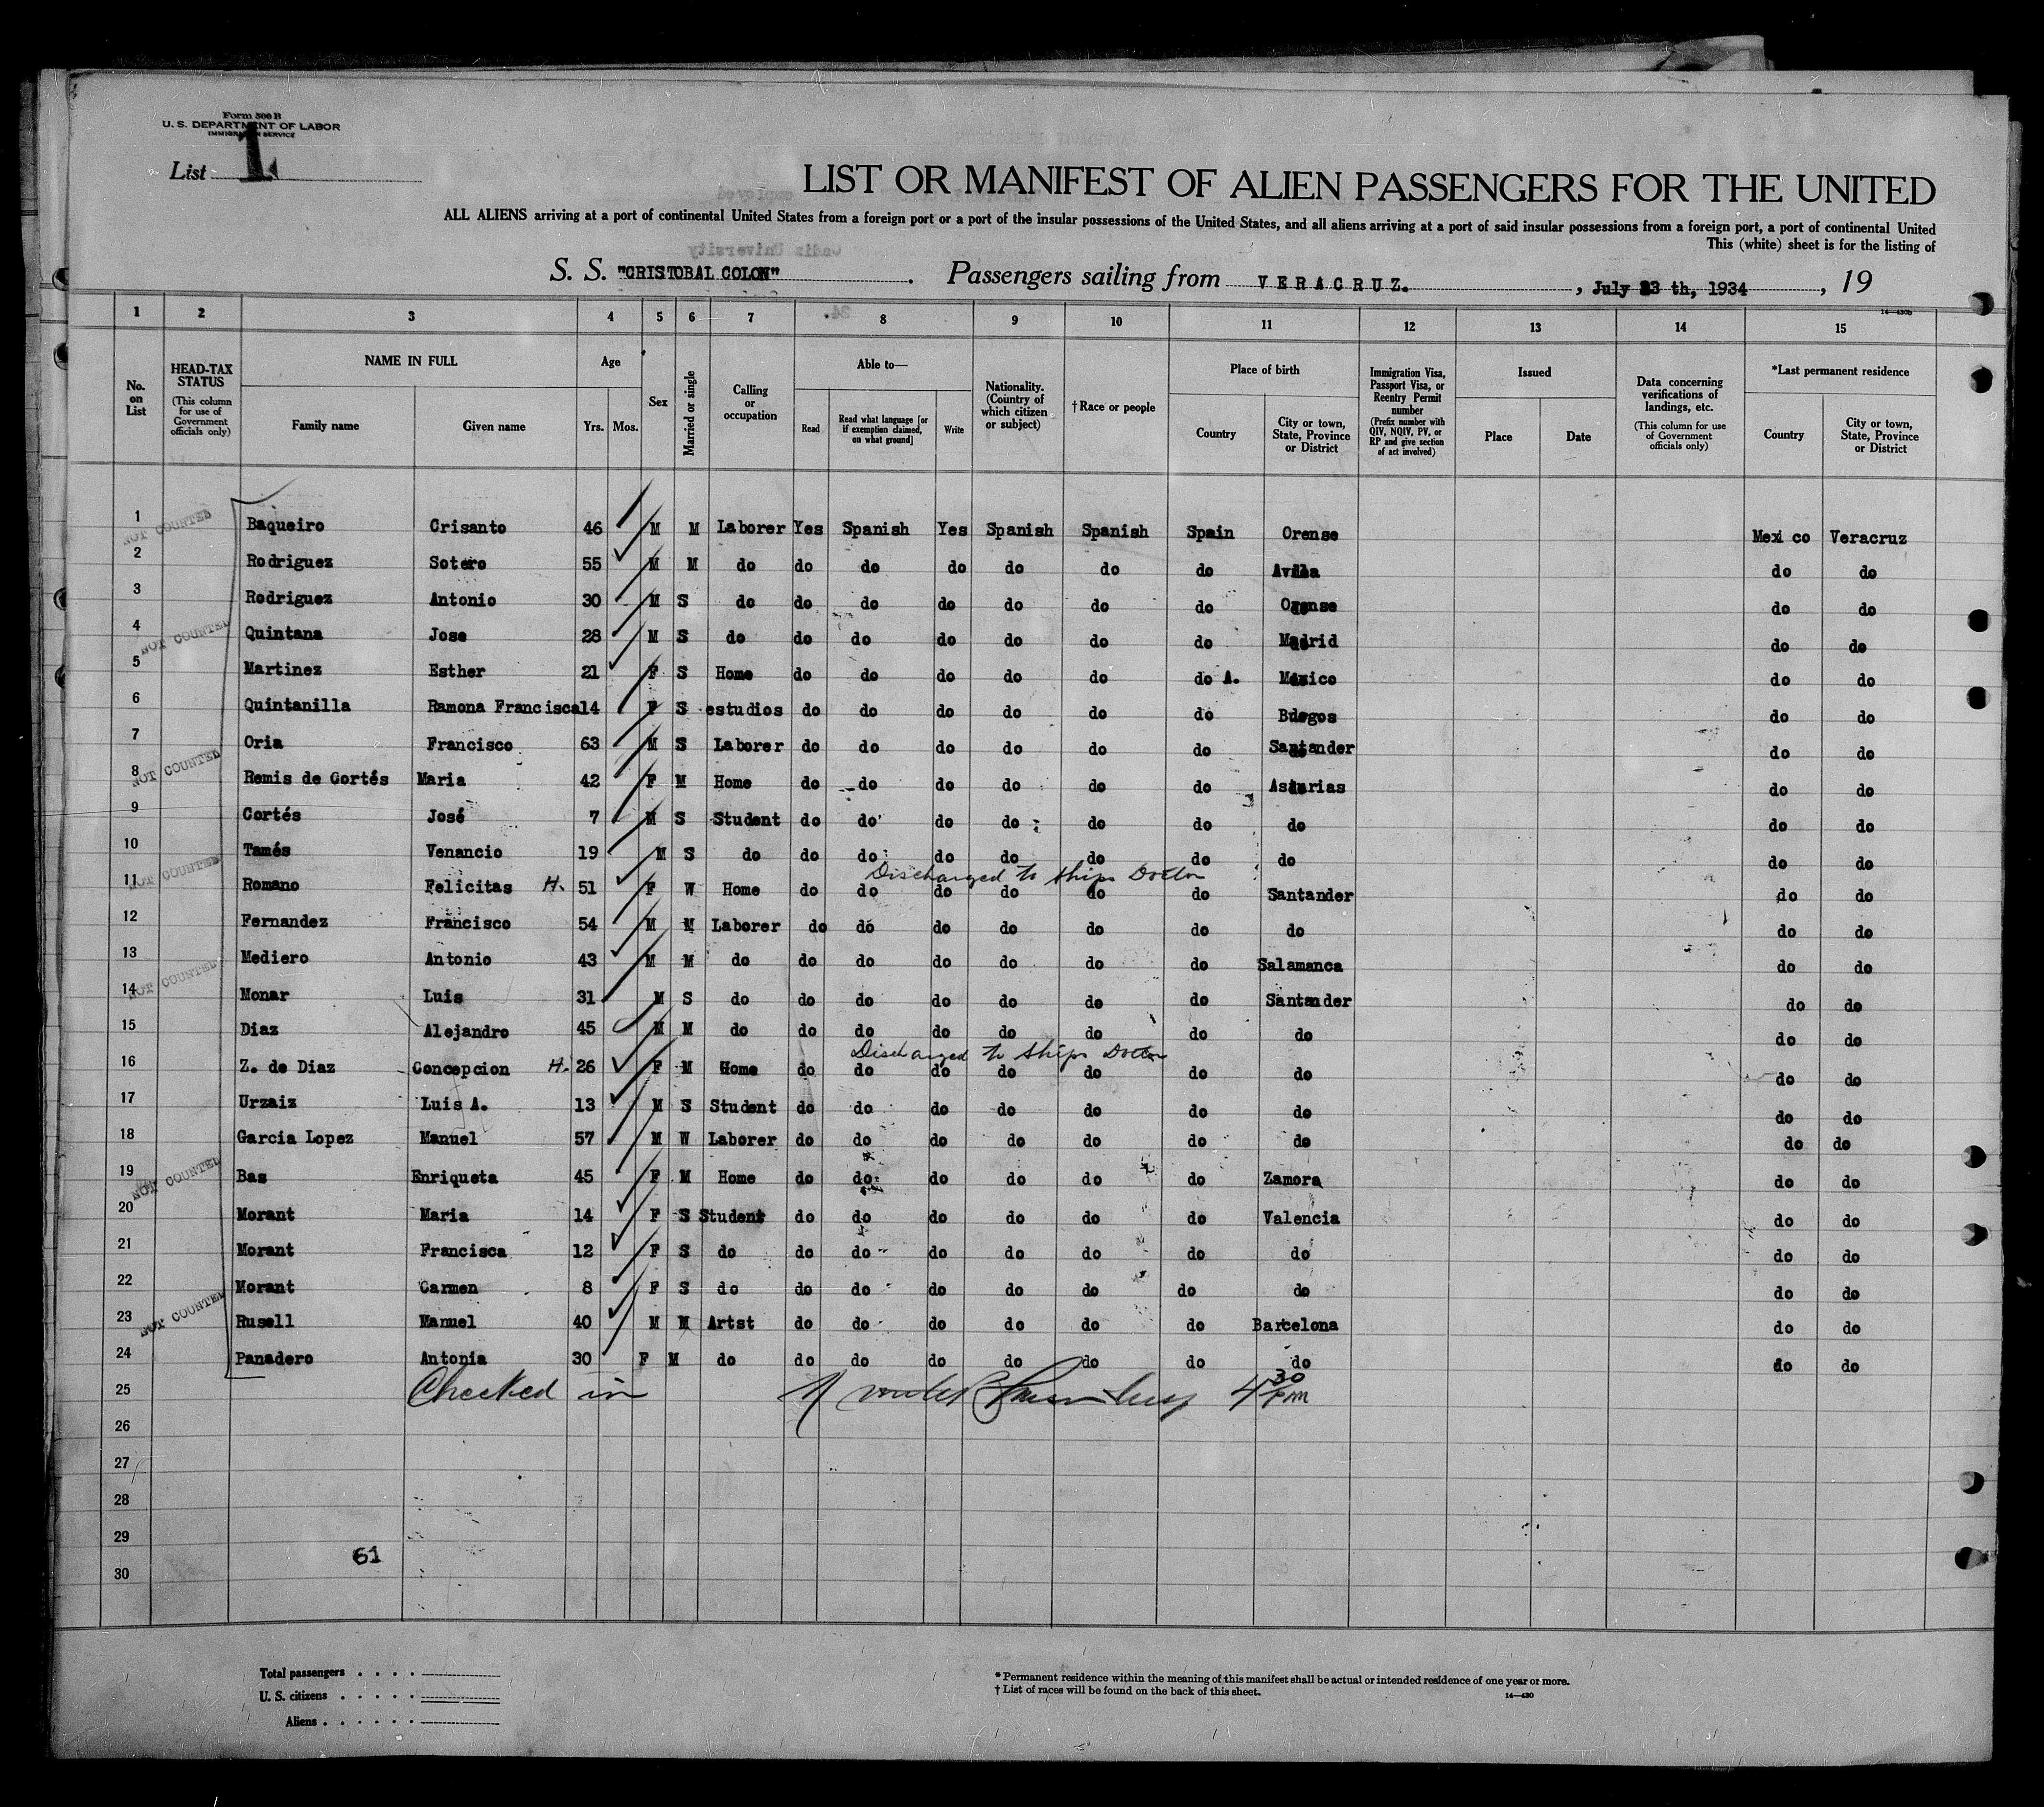 Form 500 B
U. S. DEPARTMENT OF LABOR
IMMIGRATION SERVICE
List 1
LIST OR MANIFEST OF ALIEN PASSENGERS FOR THE UNITED
ALL ALIENS arriving at a port of continental United States from a foreign port or a port of the insular possessions of the United States, and all aliens arriving at a port of said insular possessions from a foreign port, a port of continental United
This (white) sheet is for the listing of
S. S. "CRISTOBAL COLON" . Passengers sailing from VERACRUZ. , July 23 th, 1934 , 19
14—430b
1 2 3 4 5 6 7 8 9 10 11 12 13 14 15
No. on List
HEAD-TAX STATUS (This column for use of Government officials only)
NAME IN FULL
Family name Given name
Age Yrs. Mos.
Sex
Married or single
Calling or occupation
Able to—
Read Read what language [or if exemption claimed, on what ground] Write
Nationality. (Country of which citizen or subject)
† Race or people
Place of birth
Country City or town, State, Province or District
Immigration Visa, Passport Visa, or Reentry Permit number (Prefix number with QIV, NQIV, PV, or RP and give section of act involved)
Issued
Place Date
Data concerning verifications of landings, etc. (This column for use of Government officials only)
*Last permanent residence
Country City or town, State, Province or District
1 NOT COUNTED Baqueiro Crisanto 46 M M Laborer Yes Spanish Yes Spanish Spanish Spain Orense Mexi co Veracruz
2 Rodriguez Sotero 55 M M do do do do do do do Avila do do
3 Rodriguez Antonio 30 M S do do do do do do do Orense do do
4 NOT COUNTED Quintana Jose 28 M S do do do do do do do Madrid do do
5 Martinez Esther 21 F S Home do do do do do do A. Mexico do do
6 Quintanilla Ramona Francisca 14 F S estudios do do do do do do Burgos do do
7 Oria Francisco 63 M S Laborer do do do do do do Santander do do
8 NOT COUNTED Remis de Cortés Maria 42 F M Home do do do do do do Asturias do do
9 Cortés José 7 M S Student do do do do do do do do do
10 Tamés Venancio 19 M S do do do do do do do do do do
Discharged to Ships Doctor
11 NOT COUNTED Romano Felicitas H. 51 F W Home do do do do do do Santander do do
12 Fernandez Francisco 54 M M Laborer do do do do do do do do do
13 Mediero Antonio 43 M M do do do do do do do Salamanca do do
14 NOT COUNTED Monar Luis 31 M S do do do do do do do Santander do do
15 Diaz Alejandro 45 M M do do do do do do do do do do
Discharged to Ships Doctor
16 Z. de Diaz Concepcion H. 26 F M Home do do do do do do do do do
17 Urzaiz Luis A. 13 M S Student do do do do do do do do do
18 Garcia Lopez Manuel 57 M W Laborer do do do do do do do do do
19 NOT COUNTED Bas Enriqueta 45 F M Home do do do do do do Zamora do do
20 Morant Maria 14 F S Student do do do do do do Valencia do do
21 Morant Francisca 12 F S do do do do do do do do do do
22 Morant Carmen 8 F S do do do do do do do do do do
23 NOT COUNTED Rusell Manuel 40 M M Artst do do do do do do Barcelona do do
24 Panadero Antonia 30 F M do do do do do do do do do do
25 Checked in 4 30 PM
26
27
28
29
61
30
Total passengers . . . .
U. S. citizens . . . . .
Aliens . . . . . .
* Permanent residence within the meaning of this manifest shall be actual or intended residence of one year or more.
† List of races will be found on the back of this sheet. 14—430